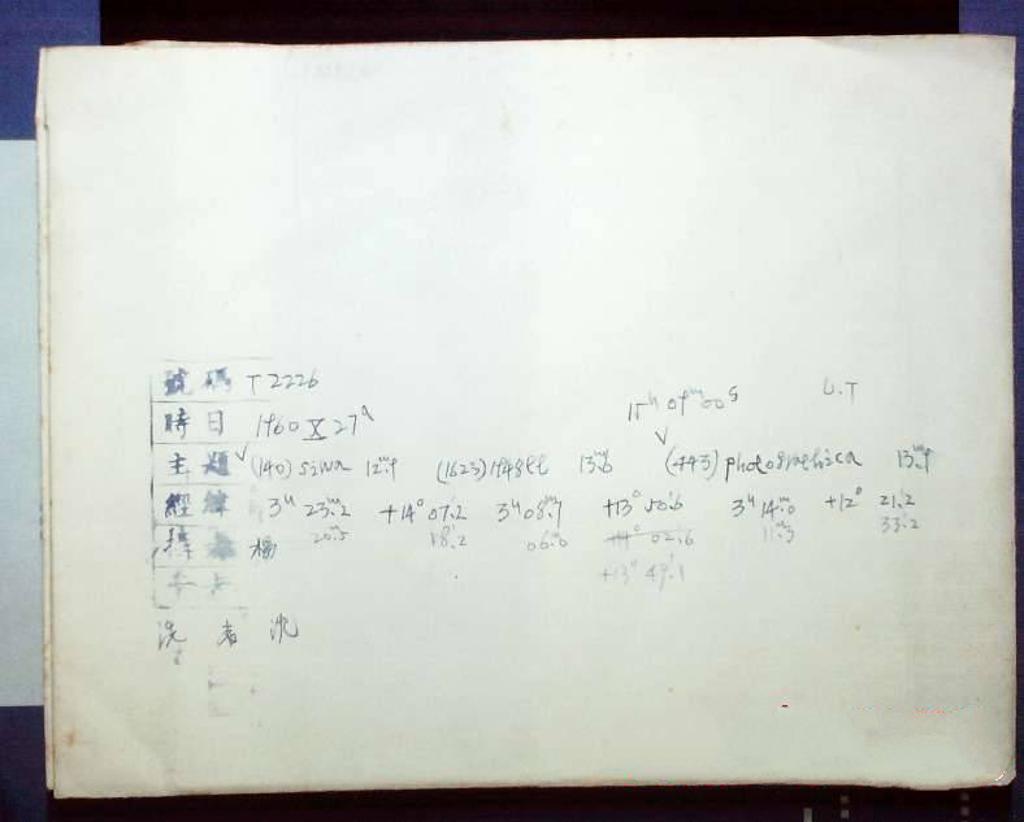 號碼 T 2226
時日 1960 X 27ᵈ 15ʰ 09ᵐ 00ˢ U.T
主題 √(140) siwa 12ᵐ.9 (1623) 1948 13ᵐ.6 √(443) photographica 13ᵐ.9
經緯 3ʰ 23ᵐ.2 +14° 07'.2 3ʰ 08ᵐ.7 +13° 50'.6 3ʰ 14ᵐ.0 +12° 21'.2
20ᵐ.5 58'.2 06ᵐ.0 02'.6 11ᵐ.3 33'.2
楊
+13° 49'.1
洗者 沈